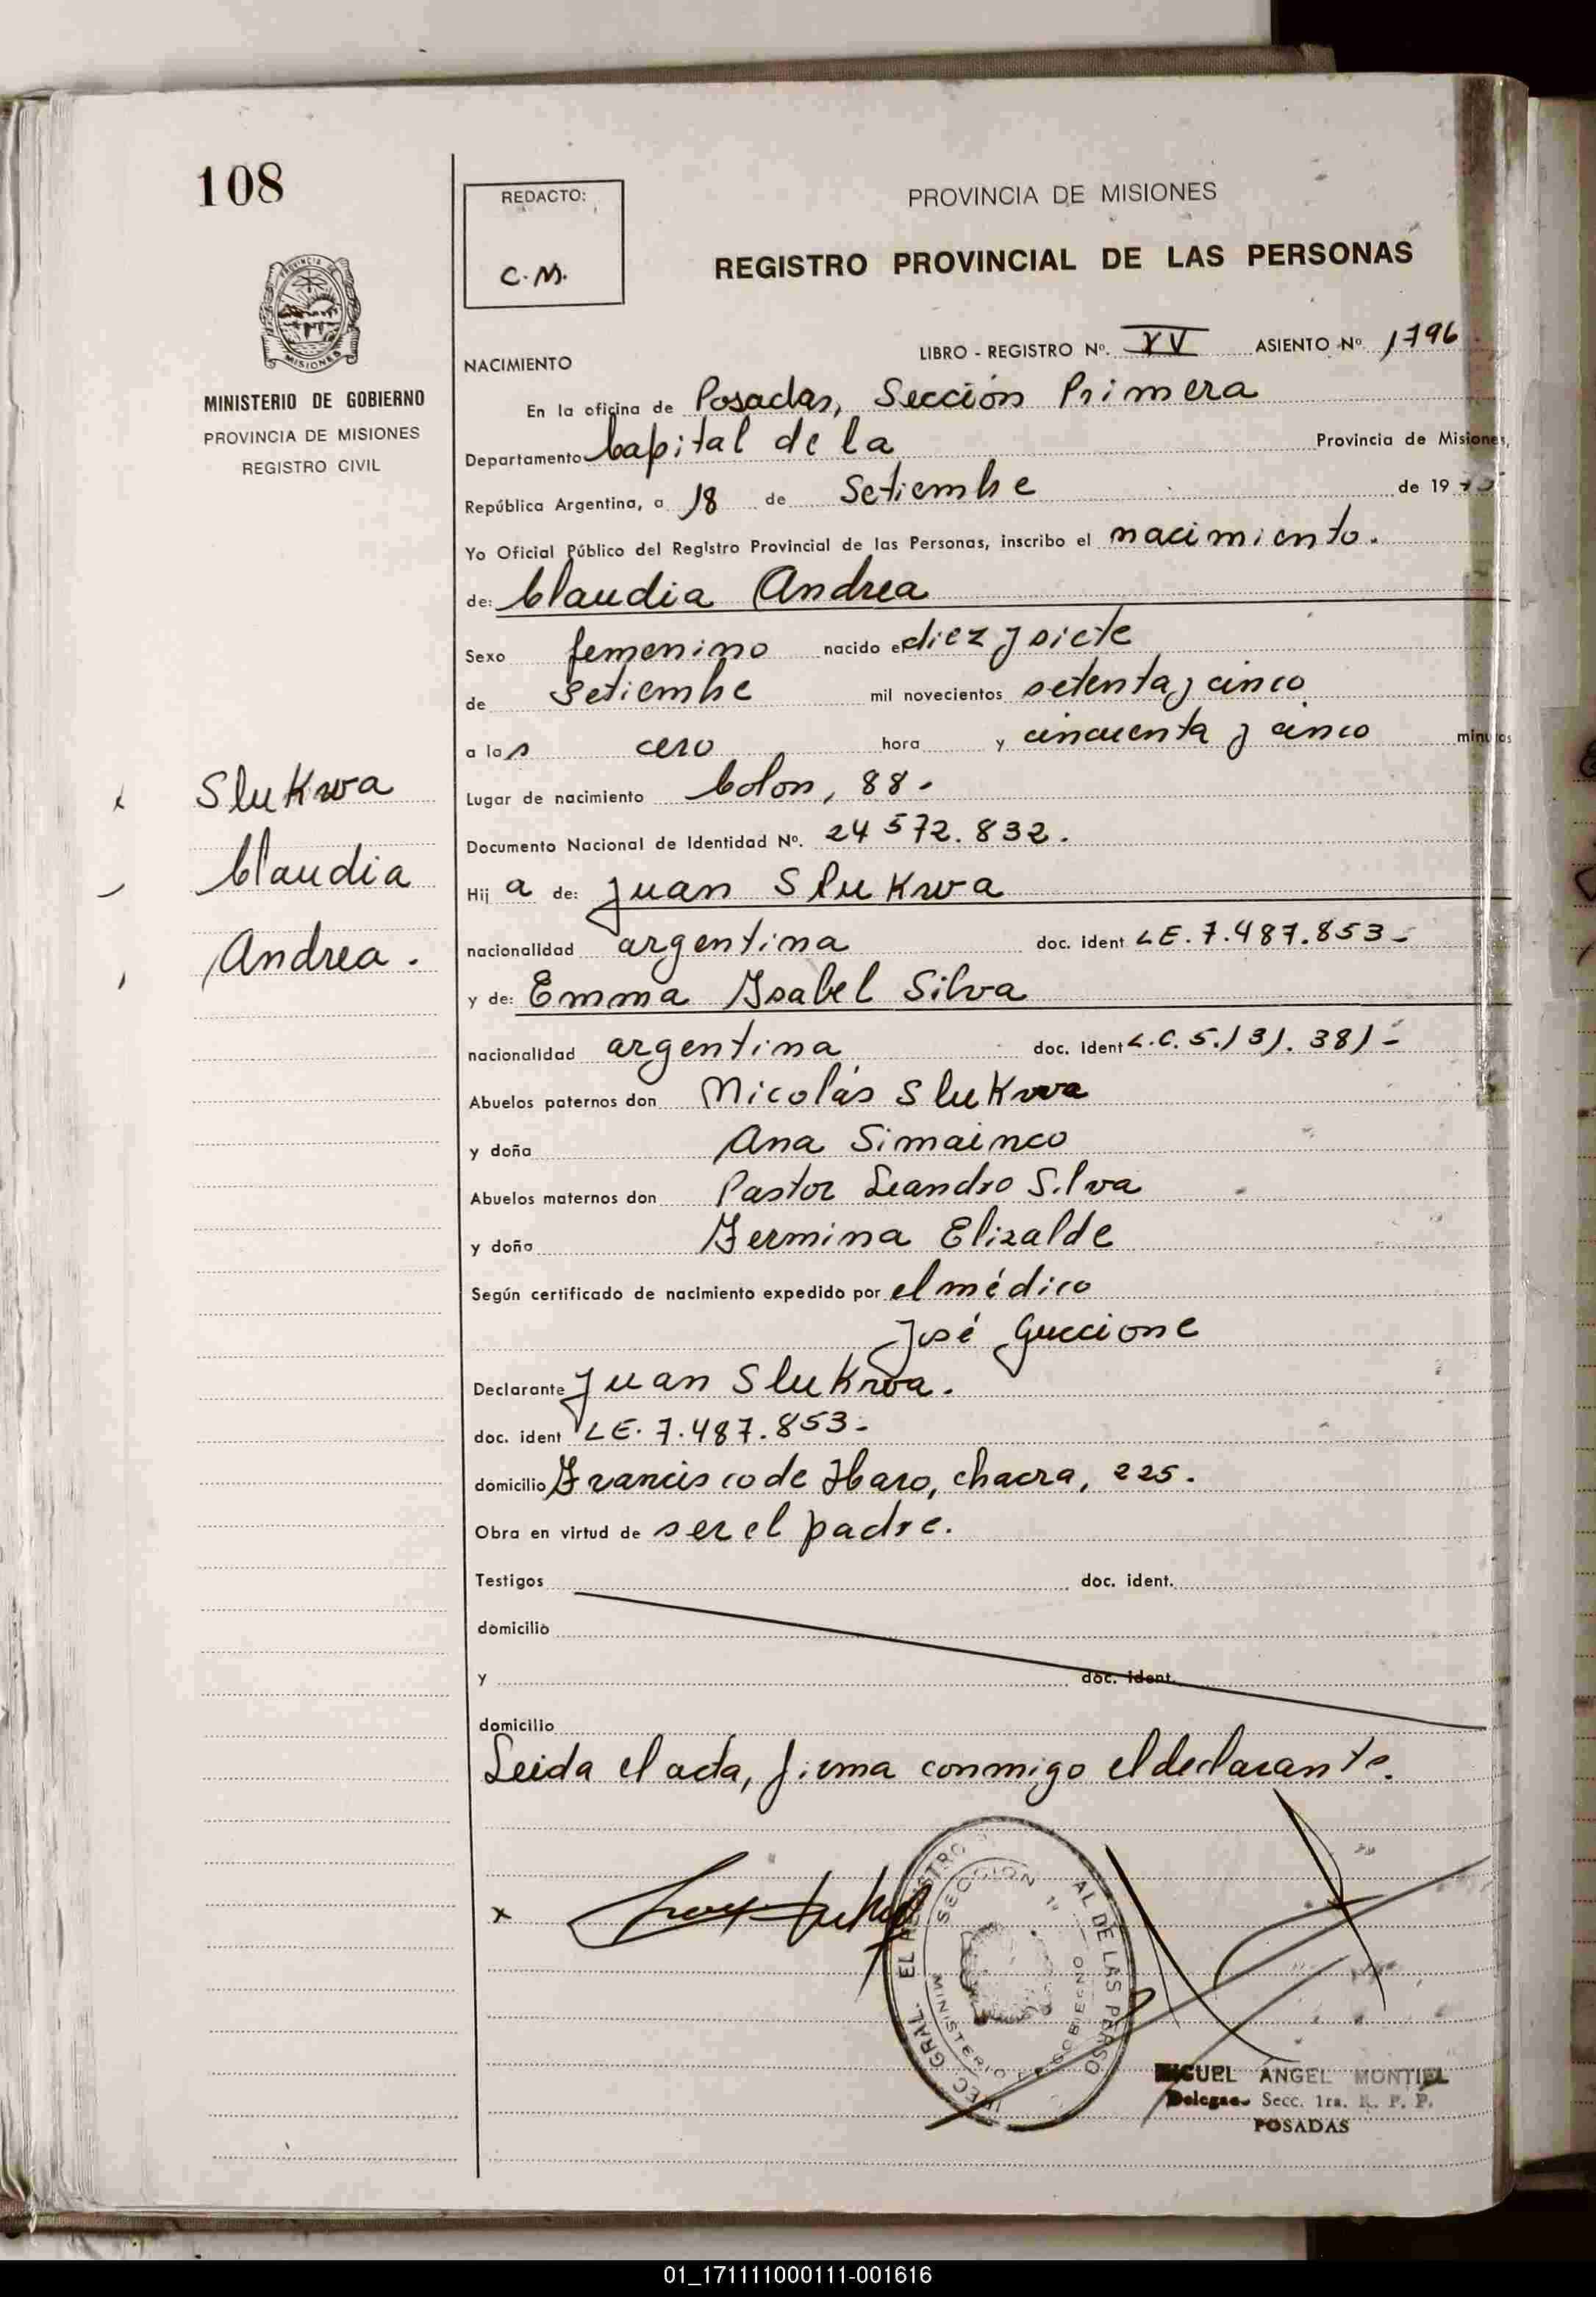 108
REDACTO:
C.M.
PROVINCIA DE MISIONES
REGISTRO PROVINCIAL DE LAS PERSONAS
MINISTERIO DE GOBIERNO
PROVINCIA DE MISIONES
REGISTRO CIVIL
NACIMIENTO
LIBRO - REGISTRO Nº. XV ASIENTO Nº 1796
En la oficina de Posadas, Sección Primera
Departamento Capital de la Provincia de Misiones,
República Argentina, a 18 de Setiembre de 1975
Yo Oficial Público del Registro Provincial de las Personas, inscribo el nacimiento.
de: Claudia Andrea
Sexo femenino nacido el diez y siete
de Setiembre mil novecientos setenta y cinco
a las cero hora y cincuenta y cinco minutos
Lugar de nacimiento Colon, 88.
Documento Nacional de Identidad Nº. 24572.832.
Hija de: Juan Slukwa
nacionalidad argentina doc. ident LE. 7.487.853-
y de: Emma Ysabel Silva
nacionalidad argentina doc. Ident L.C. 5.131.381-
Abuelos paternos don Nicolás Slukwa
y doña Ana Simainco
Abuelos maternos don Pastor Leandro Silva
y doña Fermina Elizalde
Según certificado de nacimiento expedido por el médico
José Guccione
Declarante Juan Slukwa.
doc. ident LE. 7.487.853-
domicilio Francisco de Haro, chacra, 225.
Obra en virtud de ser el padre.
Testigos doc. ident.
domicilio
y doc. ident.
domicilio
Leida el acta, firma conmigo el declarante.
Slukwa
Claudia
Andrea.
x
SECCION 1ª
MINISTERIO DE GOBIERNO
MIGUEL ANGEL MONTIEL
Delegado Secc. 1ra. R. P. P.
POSADAS
01_171111000111-001616